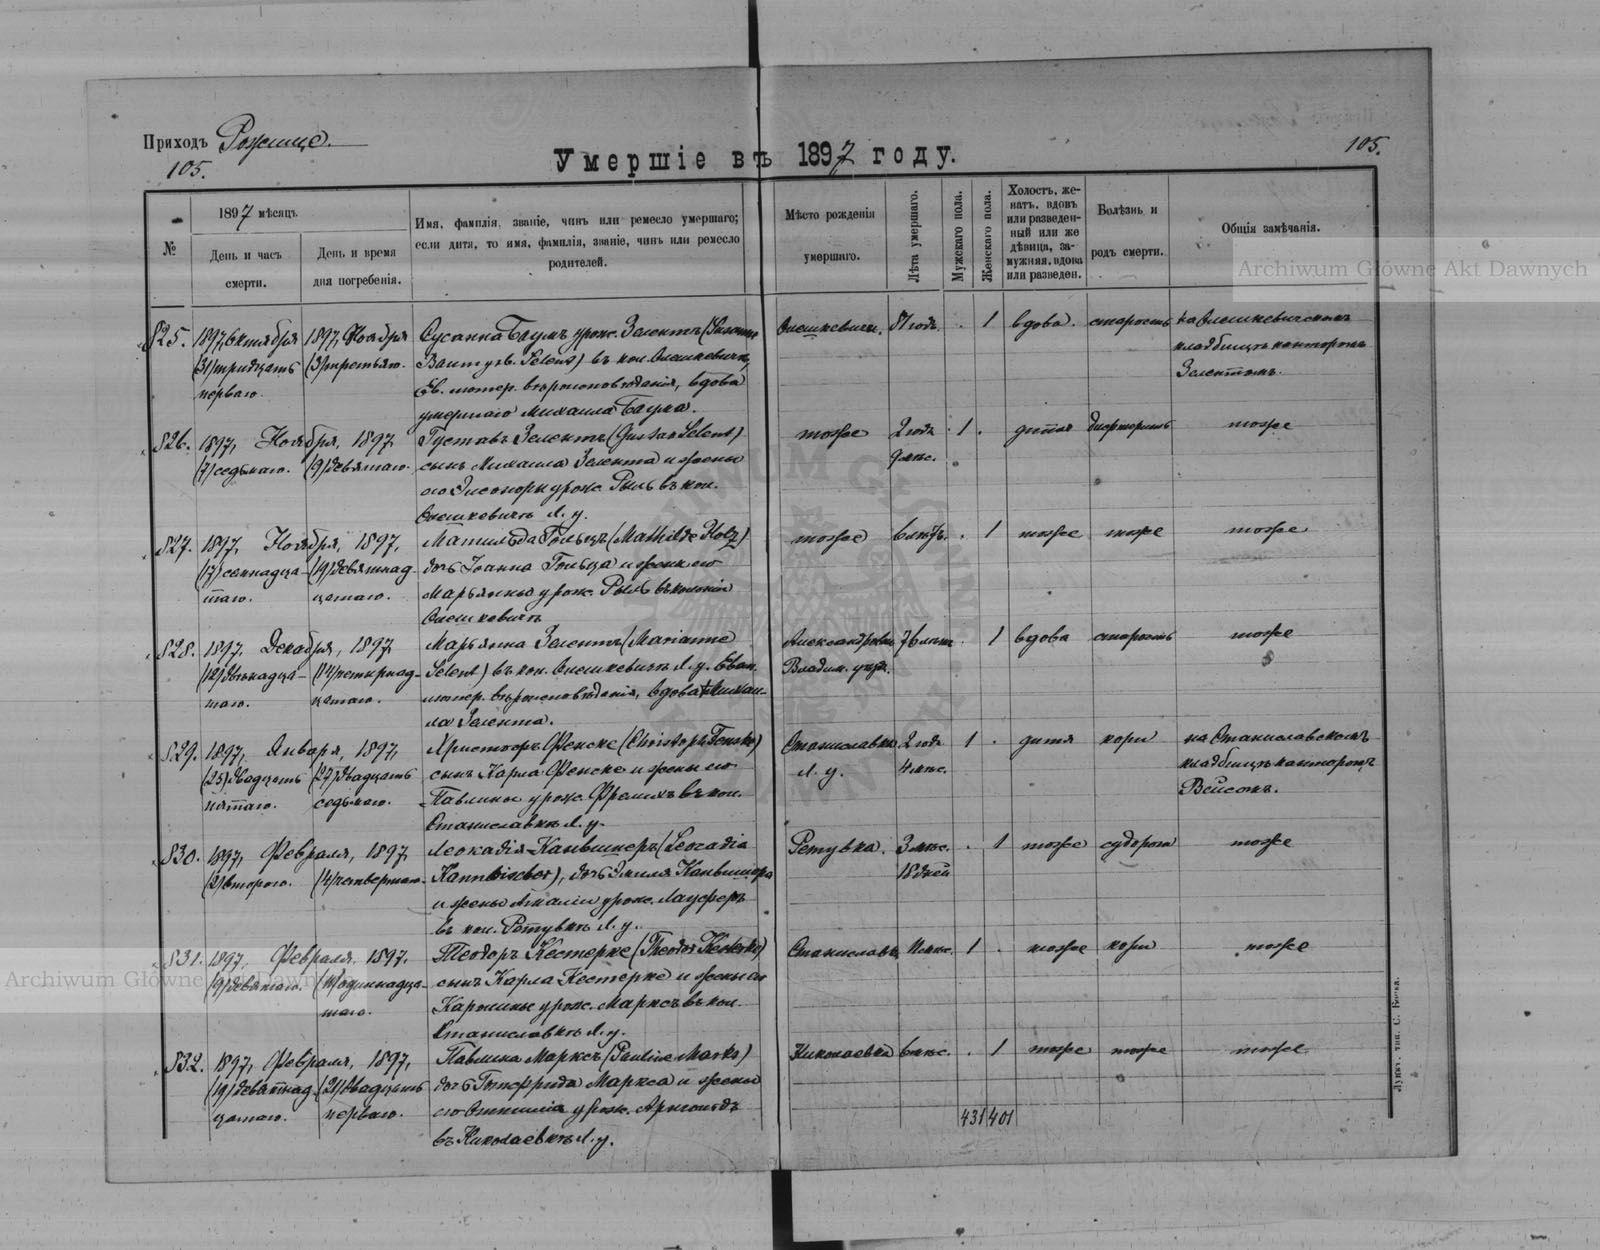 Приходъ Рожище.
105.
Умершіе въ 1897 году.
105.
№
1897 мѣсяцъ
День и часъ смерти.
День и время дня погребенія.
Имя, фамилія, званіе, чинъ или ремесло умершаго;
если дитя, то имя, фамилія, званіе, чинъ или ремесло
родителей.
Мѣсто рожденія
умершаго.
Лѣта умершаго.
Мужескаго пола.
Женскаго пола.
Холостъ, же-
натъ, вдовъ
или разведен-
ный или же
дѣвица, за-
мужняя, вдова
или разведен.
Болѣзнь и
родъ смерти.
Общія замѣчанія.
Archiwum Główne Akt Dawnych
825. 1897, Октября 1897, Ноября Сусанна Баумъ урож. Зелентъ (Susanna Олешкевичи. 81 годъ. 1 вдова. старость на Олешкевичскомъ
(31) тридцать (3) третьяго. Baum geb. Selent) въ кол. Олешкевичи, кладбищѣ канторомъ
перваго. Ев. лютер. вѣроисповѣданія, вдова Зелентомъ.
умершаго Михаила Баума.
826. 1897, Ноября, 1897, Густавъ Зелентъ (Gustav Selent) тоже 2 года 1 дитя дифтеритъ тоже
(7) седьмаго. (9) девятаго. сынъ Михаила Зелента и жены 9 мѣс.
его Элеоноры урож. Рыль въ кол.
Олешкевичъ Л. у.
827. 1897, Ноября, 1897, Матильда Гольцъ (Mathilde Holz) тоже 6 лѣтъ. 1 тоже тоже тоже
(17) семнадца- (19) девятнад- дочь Іоанна Гольца и жены его
таго. цатаго. Марьянны урож. Рыль въ колоніи
Олешковичъ
828. 1897, Декабря, 1897, Марьянна Зелентъ (Marianne Александровка 76 лѣтъ 1 вдова старость тоже
(12) двѣнадца- (14) четырнад- Selent) въ кол. Олешкевичъ Л. у. Еван. Владим. уѣзд.
таго. цатаго. лютер. вѣроисповѣданія, вдова Михаи-
ла Зелента.
829. 1897, Января, 1897, Христофъ Фенске (Christoph Fenske) Станиславка 2 года 1 дитя кори на Станиславскомъ
(25) двадцать (27) двадцать сынъ Карла Фенске и жены его Л. у. 4 мѣс. кладбищѣ канторомъ
пятаго. седьмаго. Павлины урож. Фрелихъ въ кол. Вейсомъ.
Станиславкѣ Л. у.
830. 1897, Февраля, 1897, Леокадія Канвишеръ (Leocadia Ретувка. 3 мѣс. 1 тоже судороги тоже
(2) втораго. (4) четвертаго. Kannwischer), дочь Эмиля Канвишера 18 дней
и жены Амаліи урож. Лауферъ
въ кол. Ретувкѣ Л. у.
831. 1897, Февраля, 1897, Теодоръ Кестерке (Theodor Kesterke) Станиславка 11 мѣс. 1 тоже кори тоже
(9) девятаго. (11) одиннадца- сынъ Карла Кестерке и жены его
таго. Каролины урож. Марксъ въ кол.
Станиславкѣ Л. у.
832. 1897, Февраля, 1897, Павлина Марксъ (Pauline Marks) Николаевка 6 мѣс. 1 тоже тоже тоже
(19) девятнад- (21) двадцать дочь Готфрида Маркса и жены
цатаго. перваго. его Оттиліи урож. Арнольдъ
въ Николаевкѣ Л. у.
431 401
Archiwum Główne Akt Dawnych